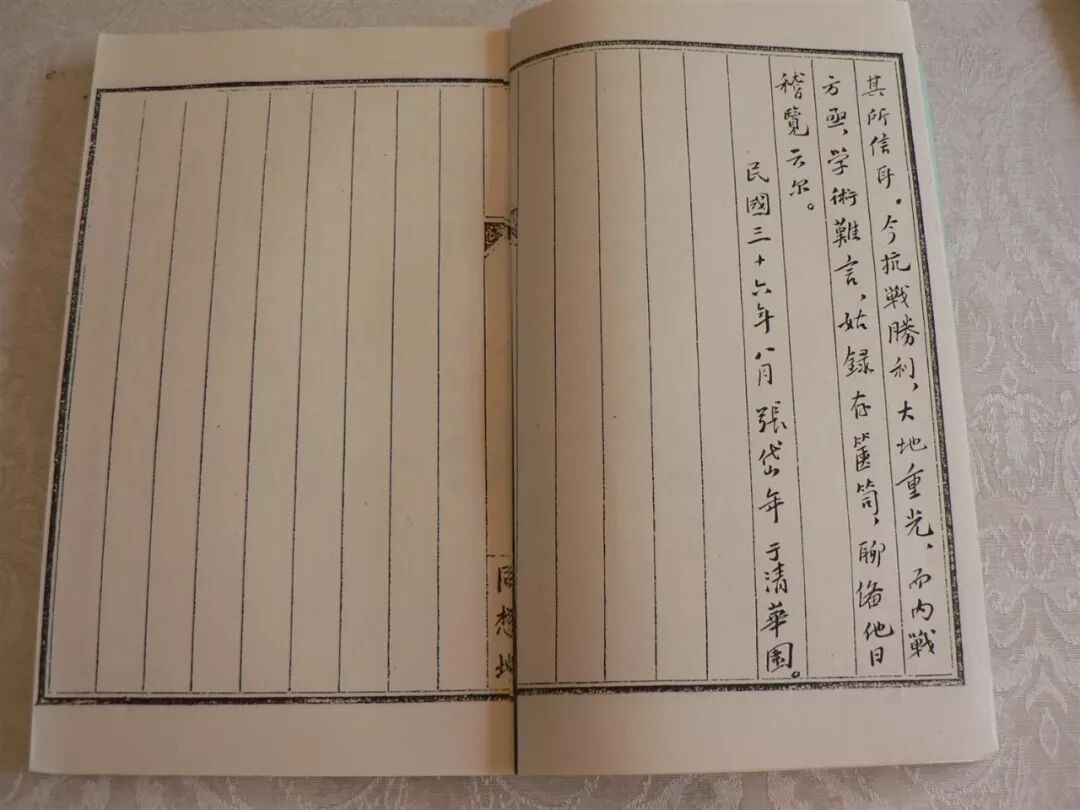 其所信耳。今抗戰勝利，大地重光，而内戰
方亟，学術難言，姑録存箧笥，聊俻他日
稽覽云尔。
民國三十六年八月張岱年于清華園。
想